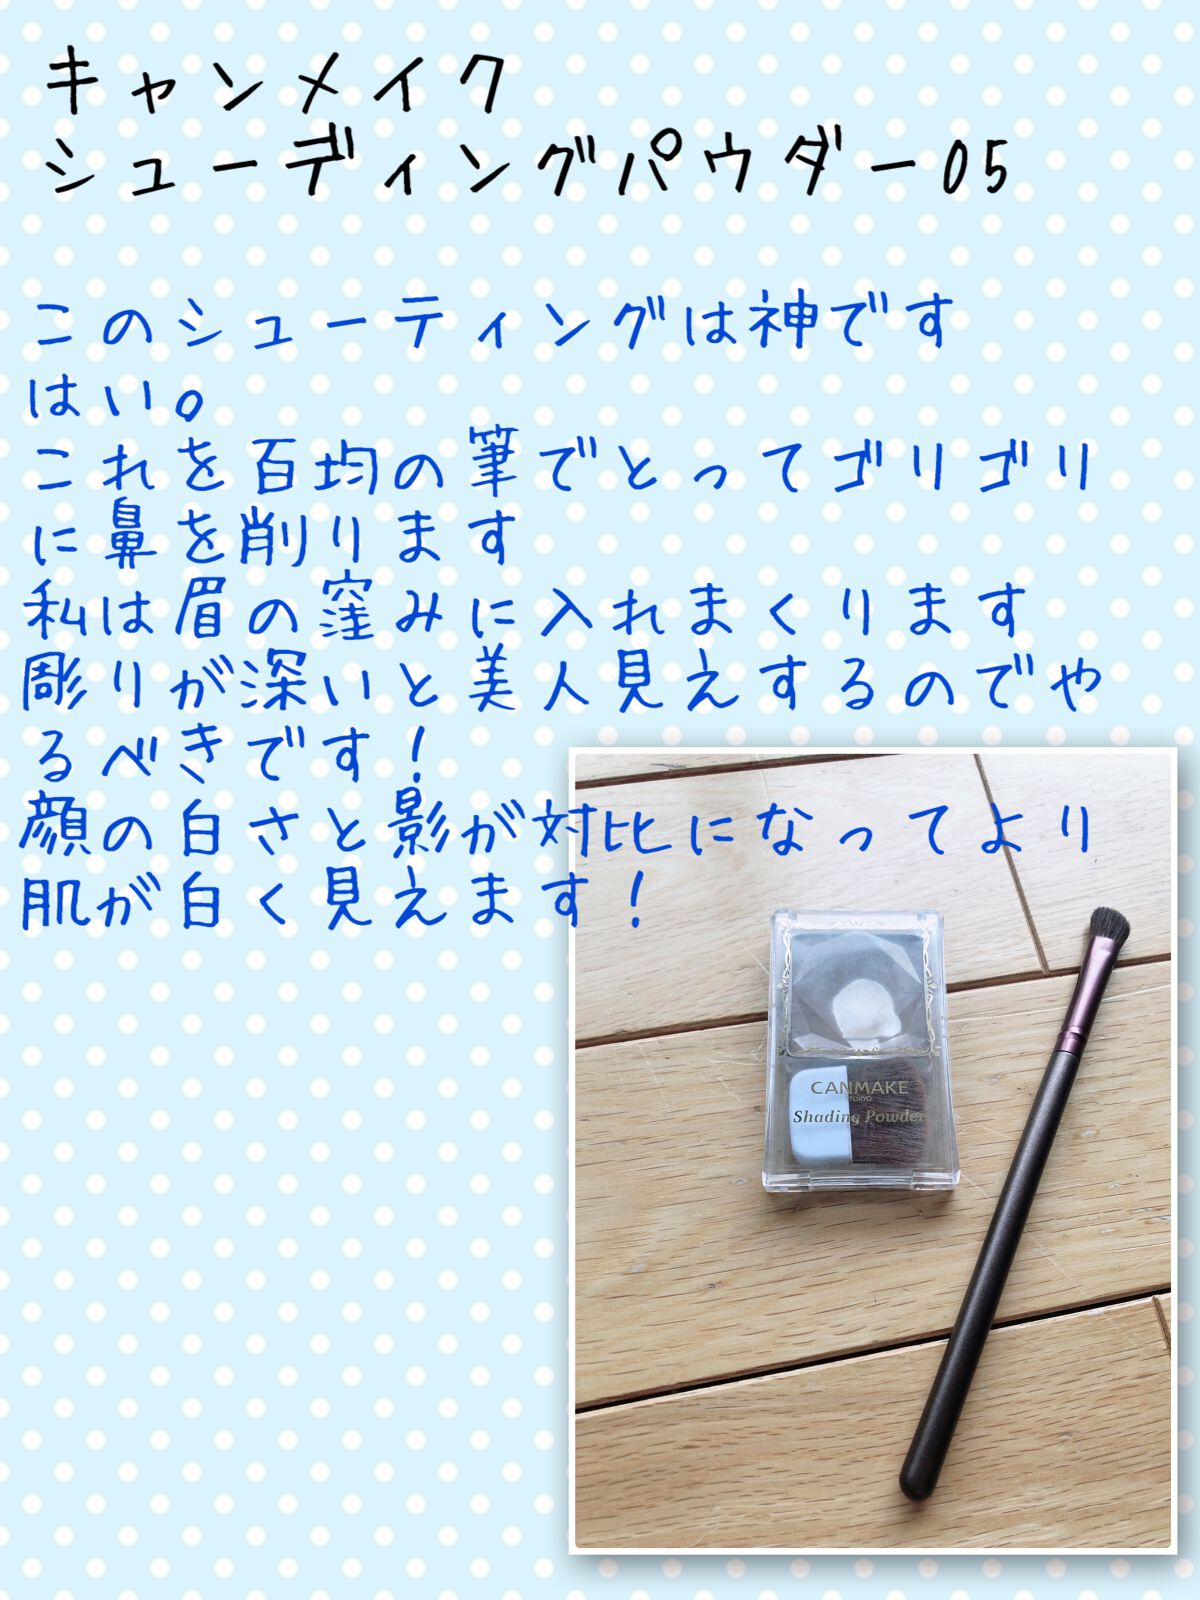 キャンメイク
シューディングパウダー05
このシューティングは神です
はい。
これを百均の筆でとってゴリゴリ
に鼻を削ります
私は眉の窪みに入れまくります
彫りが深いと美人見えするのでや
るべきです！
顔の白さと影が対比になってより
肌が白く見えます！
CANMAKE
TOKYO
Shading Powder